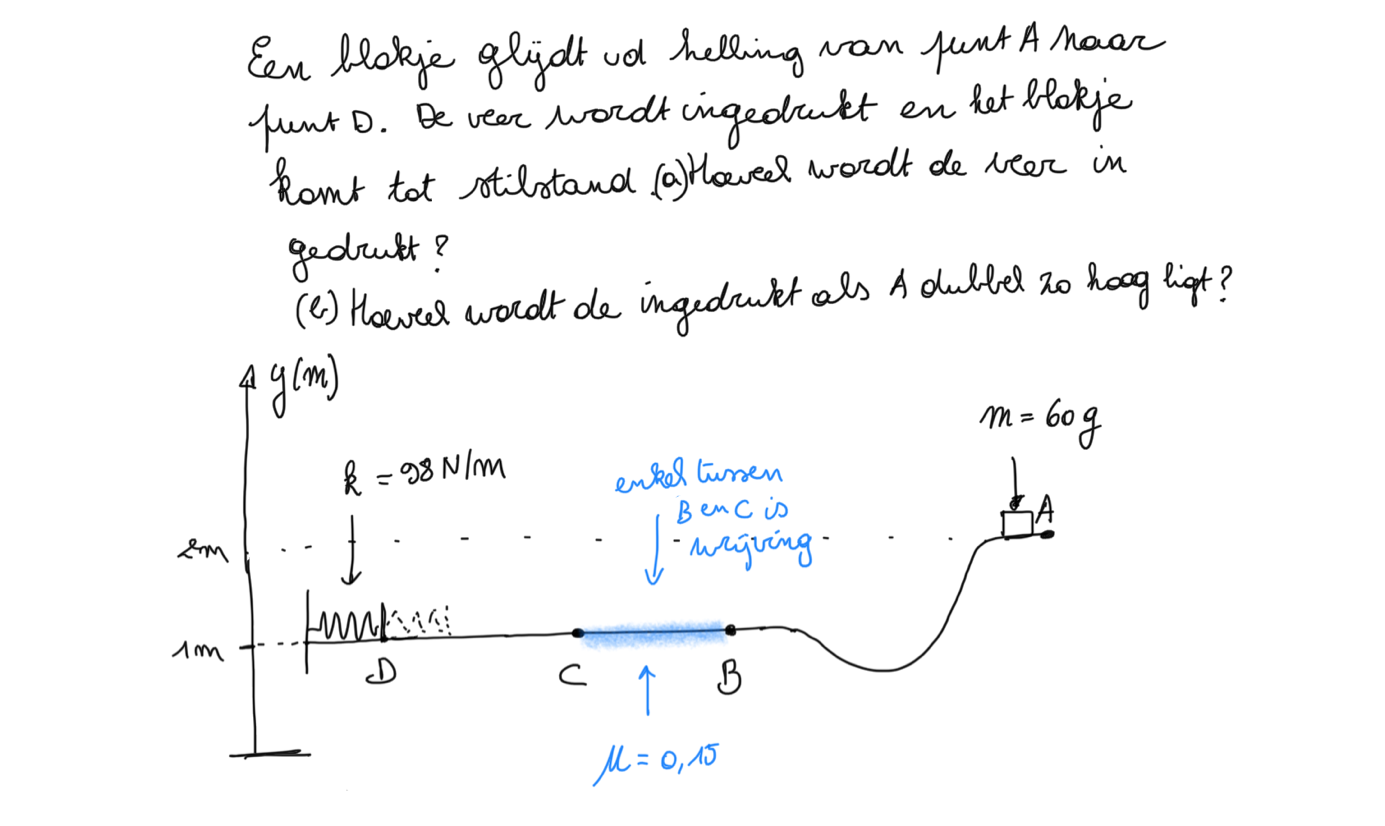 Een blokje glijdt vd helling van punt A naar
punt D. De veer wordt ingedrukt en het blokje
komt tot stilstand. (a) Hoeveel wordt de veer in
gedrukt?
(b) Hoeveel wordt de ingedrukt als A dubbel zo hoog ligt?
y(m)
m = 60 g
k = 98 N/m
enkel tussen
B en C is
wrijving
A
2m
1m
D
C
B
μ = 0,15